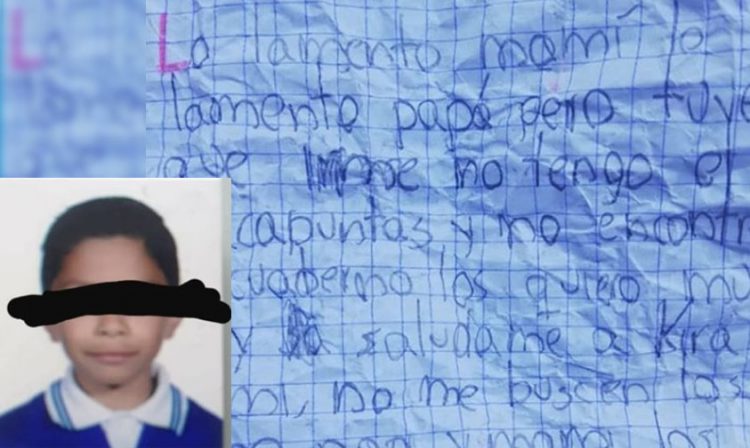 Lo lamento mamí lo
lamento papá pero tuve
que no tengo el
capuntas y no encontr
cuaderno los quiero mu
y saludame a Kira
mi, no me buscen los